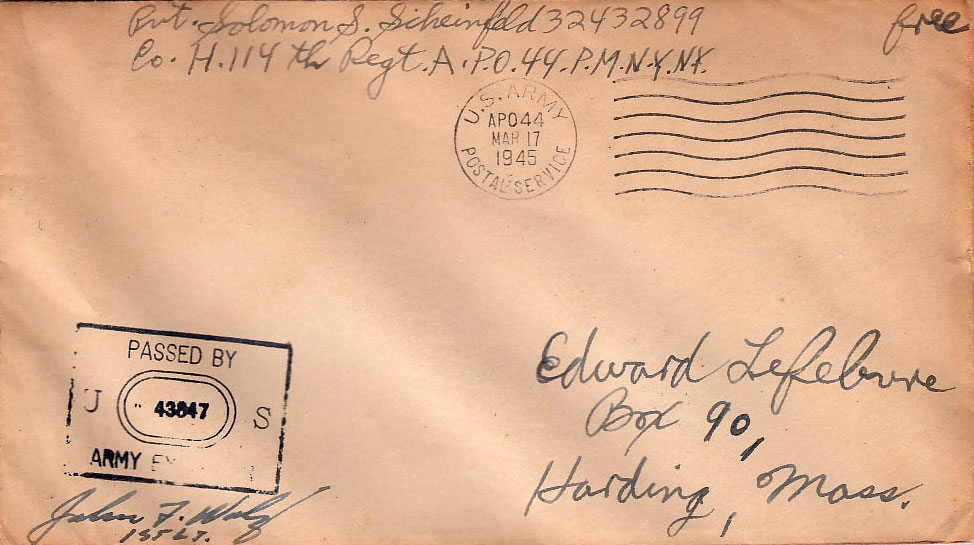 Pvt. Solomon S. Scheinfeld 32432899
Co. H. 114 th Regt. A.P.O. 44. P.M. N.Y. N.Y.
free
U.S. ARMY
APO 44
MAR 17
1945
POSTAL SERVICE
PASSED BY
U S
43847
ARMY
Edward Lefebvre
Box 90,
Harding, Mass.
John F.
1ST LT.